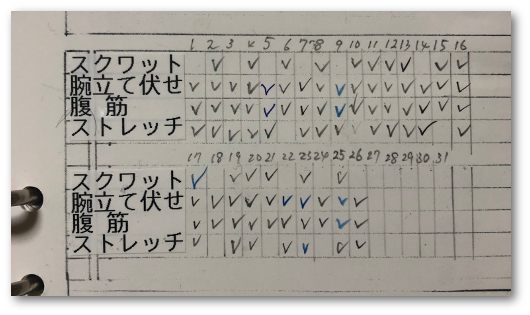 1 2 3 4 5 6 7 8 9 10 11 12 13 14 15 16
スクワット ✓ ✓ ✓ ✓ ✓ ✓ ✓ ✓ ✓ ✓
腕立て伏せ ✓ ✓ ✓ ✓ ✓ ✓ ✓ ✓ ✓ ✓ ✓ ✓ ✓ ✓ ✓ ✓
腹 筋 ✓ ✓ ✓ ✓ ✓ ✓ ✓ ✓ ✓ ✓ ✓ ✓ ✓ ✓ ✓ ✓
ストレッチ ✓ ✓ ✓ ✓ ✓ ✓ ✓ ✓ ✓ ✓ ✓ ✓ ✓ ✓
17 18 19 20 21 22 23 24 25 26 27 28 29 30 31
スクワット ✓ ✓ ✓ ✓ ✓ ✓
腕立て伏せ ✓ ✓ ✓ ✓ ✓ ✓ ✓ ✓ ✓ ✓
腹 筋 ✓ ✓ ✓ ✓ ✓ ✓ ✓ ✓ ✓ ✓
ストレッチ ✓ ✓ ✓ ✓ ✓ ✓ ✓